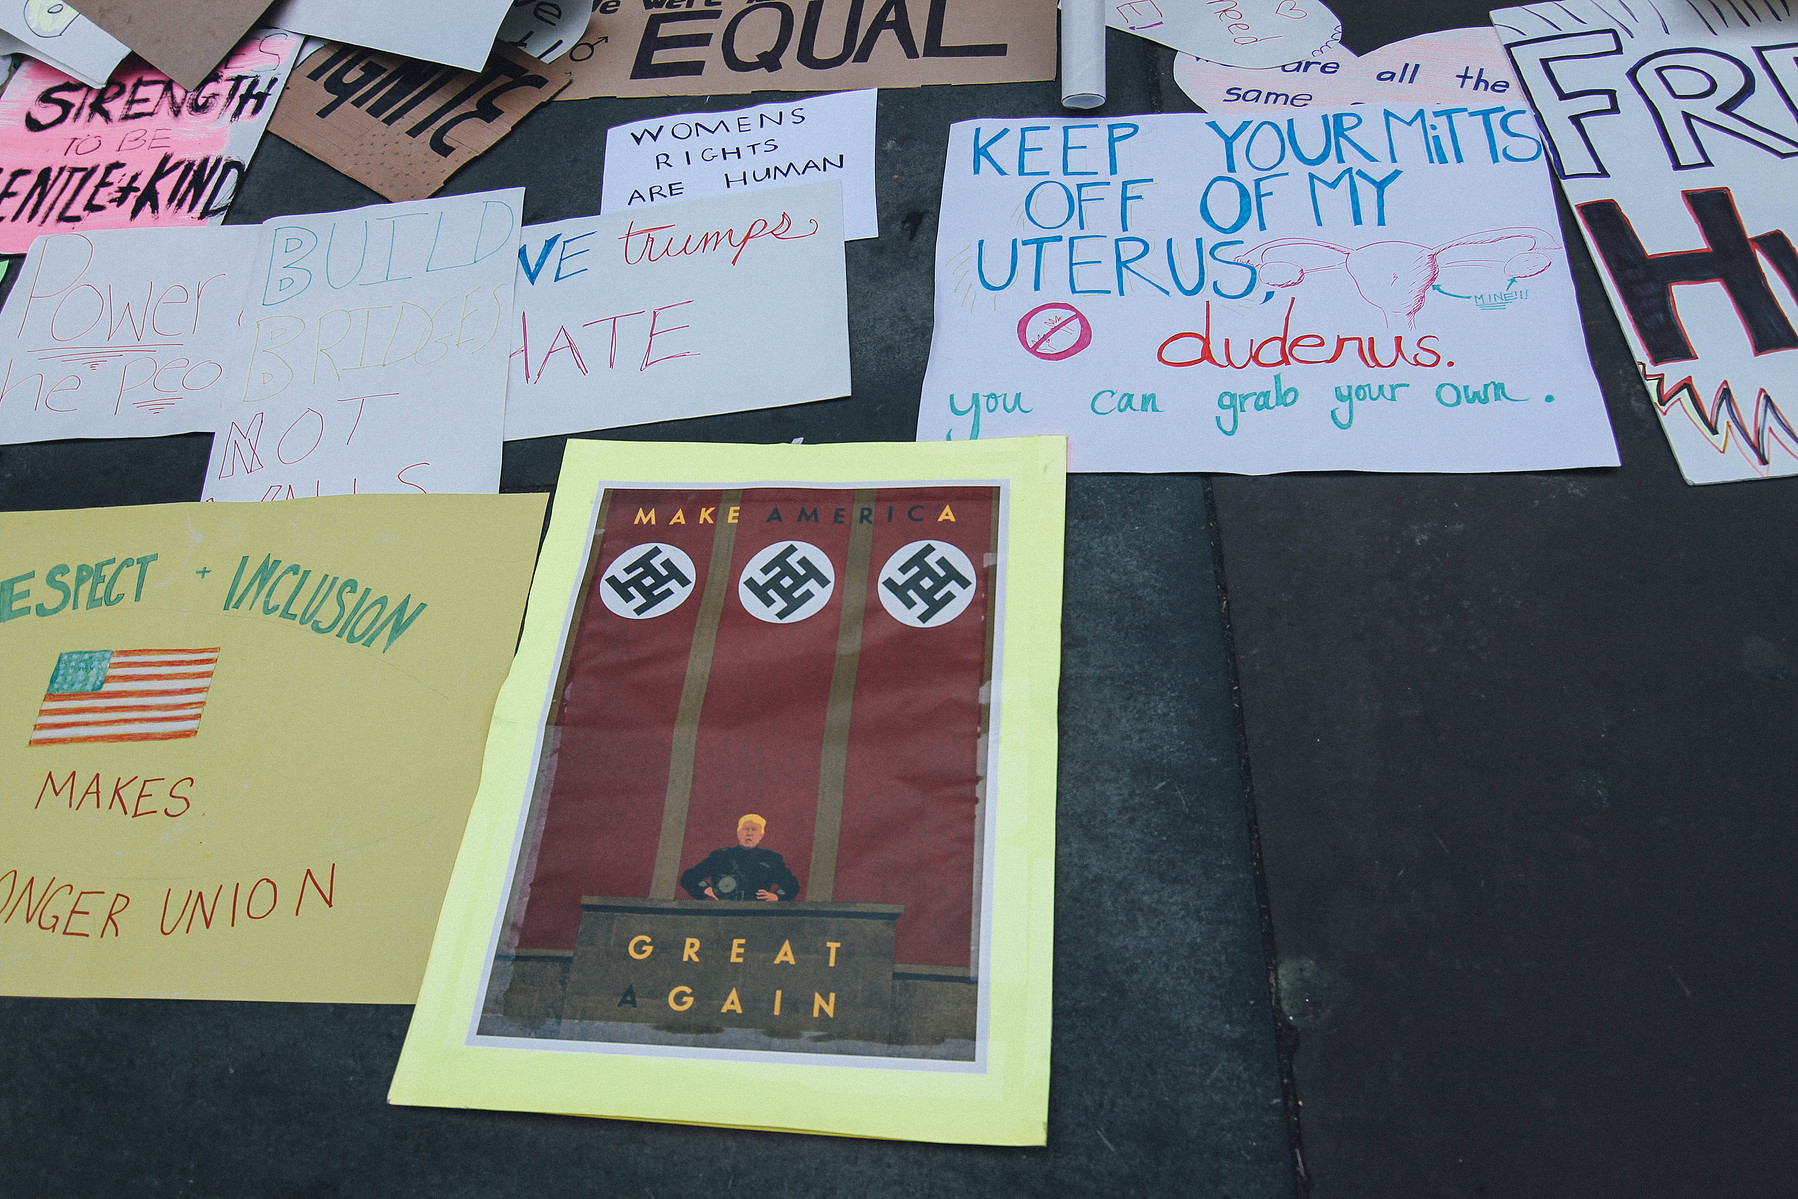 EQUAL
IGNITE
STRENGTH
TO BE
GENTLE + KIND
WOMENS
RIGHTS
ARE HUMAN
need
are all the
same
KEEP YOUR MiTTS
OFF OF MY
UTERUS,
MINE!!!
duderus.
you can grab your own.
Power
he Peo
BUILD
BRIDGES
NOT
WALLS
VE trumps
HATE
ESPECT + INCLUSION
MAKES
ONGER UNION
MAKE AMERICA
GREAT
AGAIN